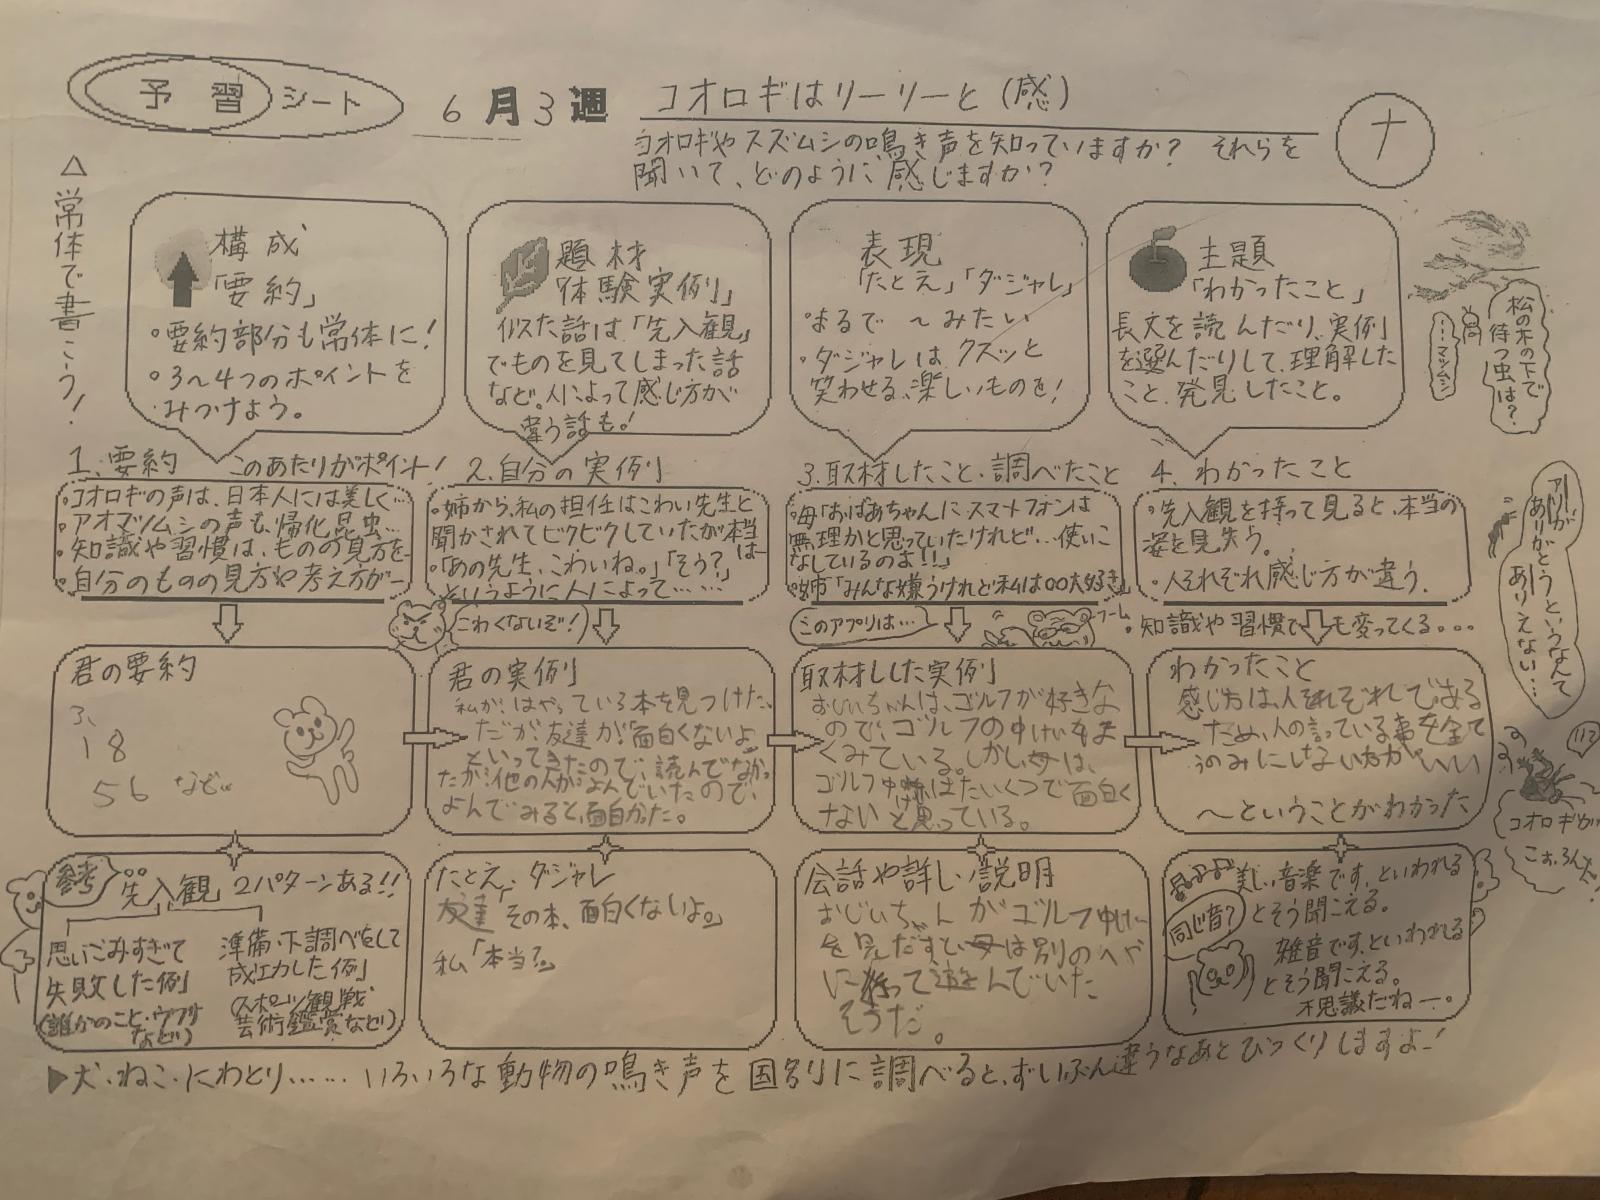 予習シート
6月3週
コオロギはリーリーと(感)
ナ
コオロギやスズムシの鳴き声を知っていますか? それらを
聞いて、どのように感じますか?
△常体で書こう!
構成
「要約」
・要約部分も常体に!
・3〜4つのポイントを
みつけよう。
題材
「体験実例」
似た話は「先入観」
でものを見てしまった話
など。人によって感じ方が
違う話も!
表現
「たとえ」「ダジャレ」
・まるで 〜みたい
・ダジャレは クスッと
笑わせる、楽しいものを!
主題
「わかったこと」
長文を読んだり、実例
を選んだりして、理解した
こと、発見したこと。
松の木の下で
待つ虫は?
…マツムシ
1.要約 このあたりがポイント!
・コオロギの声は、日本人には美しく…
・アオマツムシの声も帰化昆虫…
・知識や習慣は、ものの見方を…
・自分のものの見方や考え方が―
2.自分の実例
・姉から、私の担任はこわい先生と
聞かされてビクビクしていたが本当は
・「あの先生、こわいね。」「そう?」
というように人によって……
3.取材したこと・調べたこと
・母「おばあちゃんにスマートフォンは
無理かと思っていたけれど…使いこ
なしているのよ!!」
・姉「みんな嫌うけれど私は○○大好き」
4.わかったこと
・先入観を持って見ると、本当の
姿を見失う。
・人それぞれ感じ方が違う。
・知識や習慣でも変ってくる…
アリが
ありがとうというなんて
ありえない…
こわくないぞ!
このアプリは…
フーム
君の要約
3、
18
56 など。
君の実例
私が、はやっている本を見つけた。
だが、友達が「面白くないよ」
といってきたので、読んでなかっ
たが、他の人がよんでいたので、
よんでみると、面白かった。
取材した実例
おじいちゃんは、ゴルフが好きな
ので、ゴルフの中けいをよ
くみている。しかし、母は、
ゴルフ中けいはたいくつで面白く
ないと思っている。
わかったこと
感じ方は人それぞれである
ため、人の言っている事を全て
うのみにしない方がいい
〜ということがわかった
コオロギが
こおろんだ
参考
先入観 2パターンある!!
思いこみすぎて
失敗した例
(誰かのこと・ウワサ
など)
準備・下調べをして
成功した例
(スポーツ観戦
芸術鑑賞など)
たとえ、ダジャレ
友達「その本、面白くないよ。」
私「本当?」
会話や詳しい説明
おじいちゃんがゴルフ中けい
を見だすと、母は別のへや
に行って遊んでいた
そうだ。
美しい音楽です、といわれる
とそう聞こえる。
同じ音?
雑音です、といわれる
とそう聞こえる。
不思議だねー。
▶犬・ねこ・にわとり……いろいろな動物の鳴き声を国別に調べると、ずいぶん違うなあとびっくりしますよ!